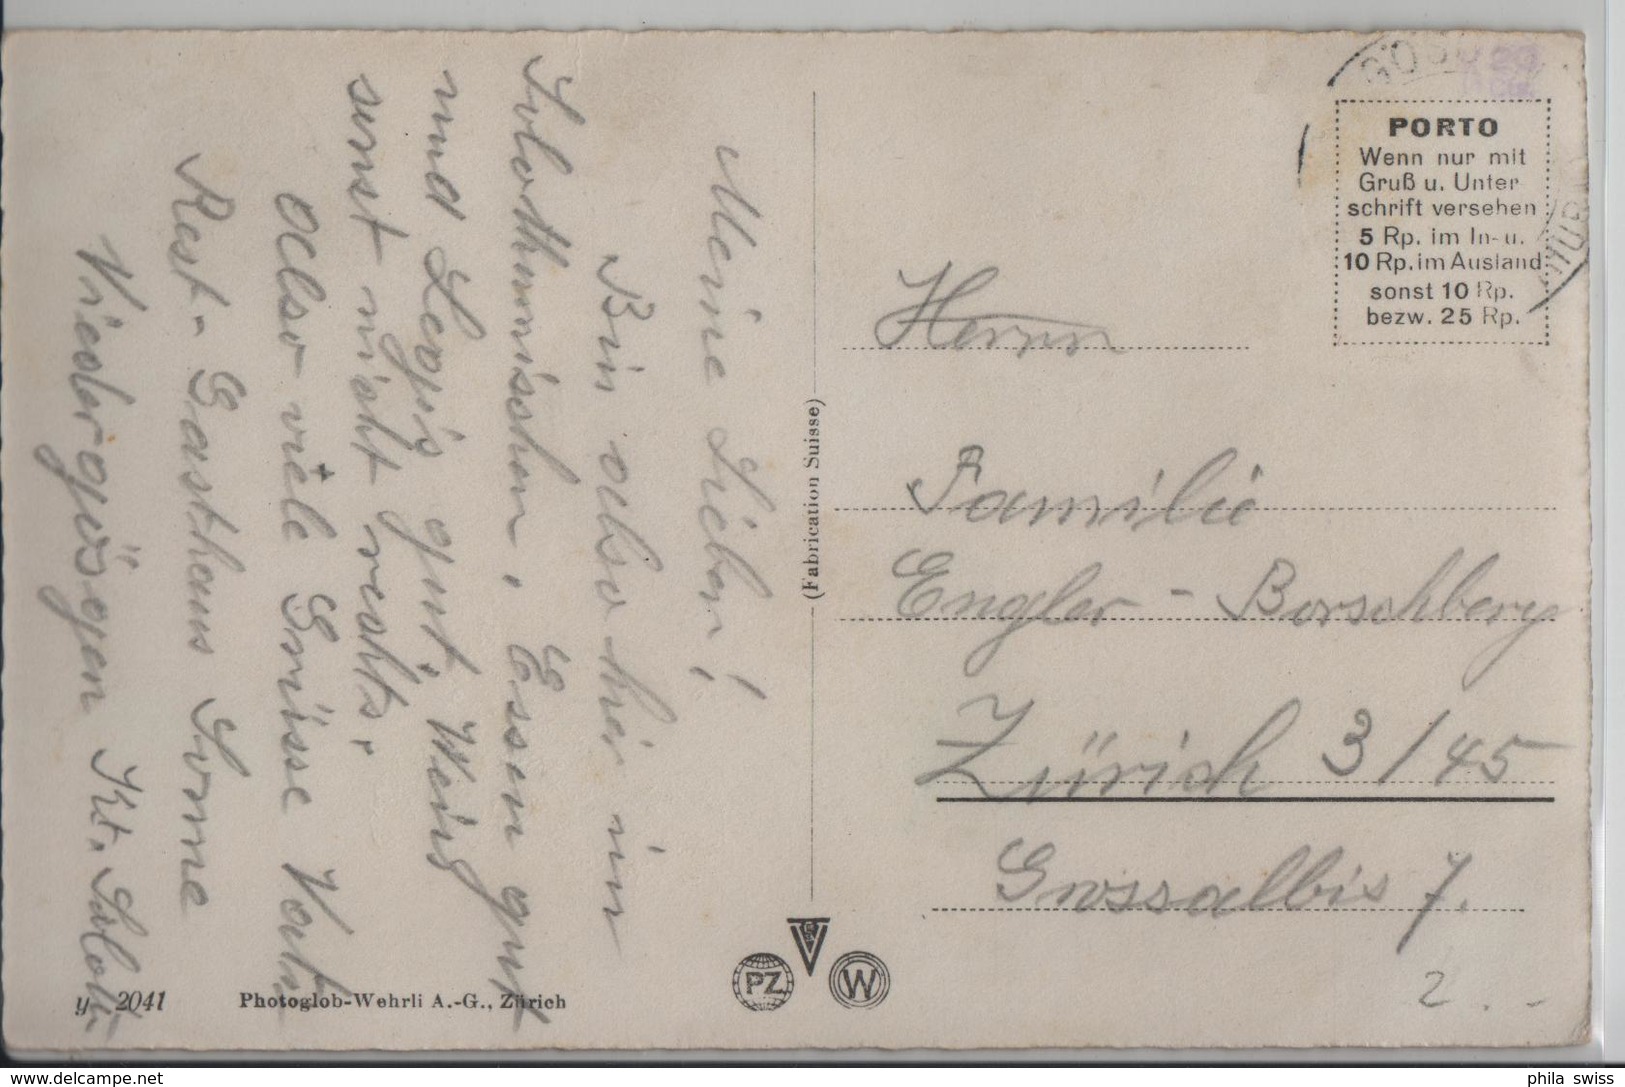 Meine Lieben!
Bin also hier im
Solothurnischen. Essen gut
und Logis gut. Weiss
sonst nicht rechts.
Also viele Grüsse Vati
Rest. Gasthaus Sonne
Niedergösgen Kt. Soloth.
(Fabrication Suisse)
GÖSG
PORTO
Wenn nur mit
Gruß u. Unter
schrift versehen
5 Rp. im In- u.
10 Rp. im Ausland
sonst 10 Rp.
bezw. 25 Rp.
Herrn
Familie
Engler - Borschberg
Zürich 3/45
Grossalbis 7.
PZ
W
y 2041
Photoglob-Wehrli A.-G., Zürich
2.-
www.delcampe.net
phila swiss